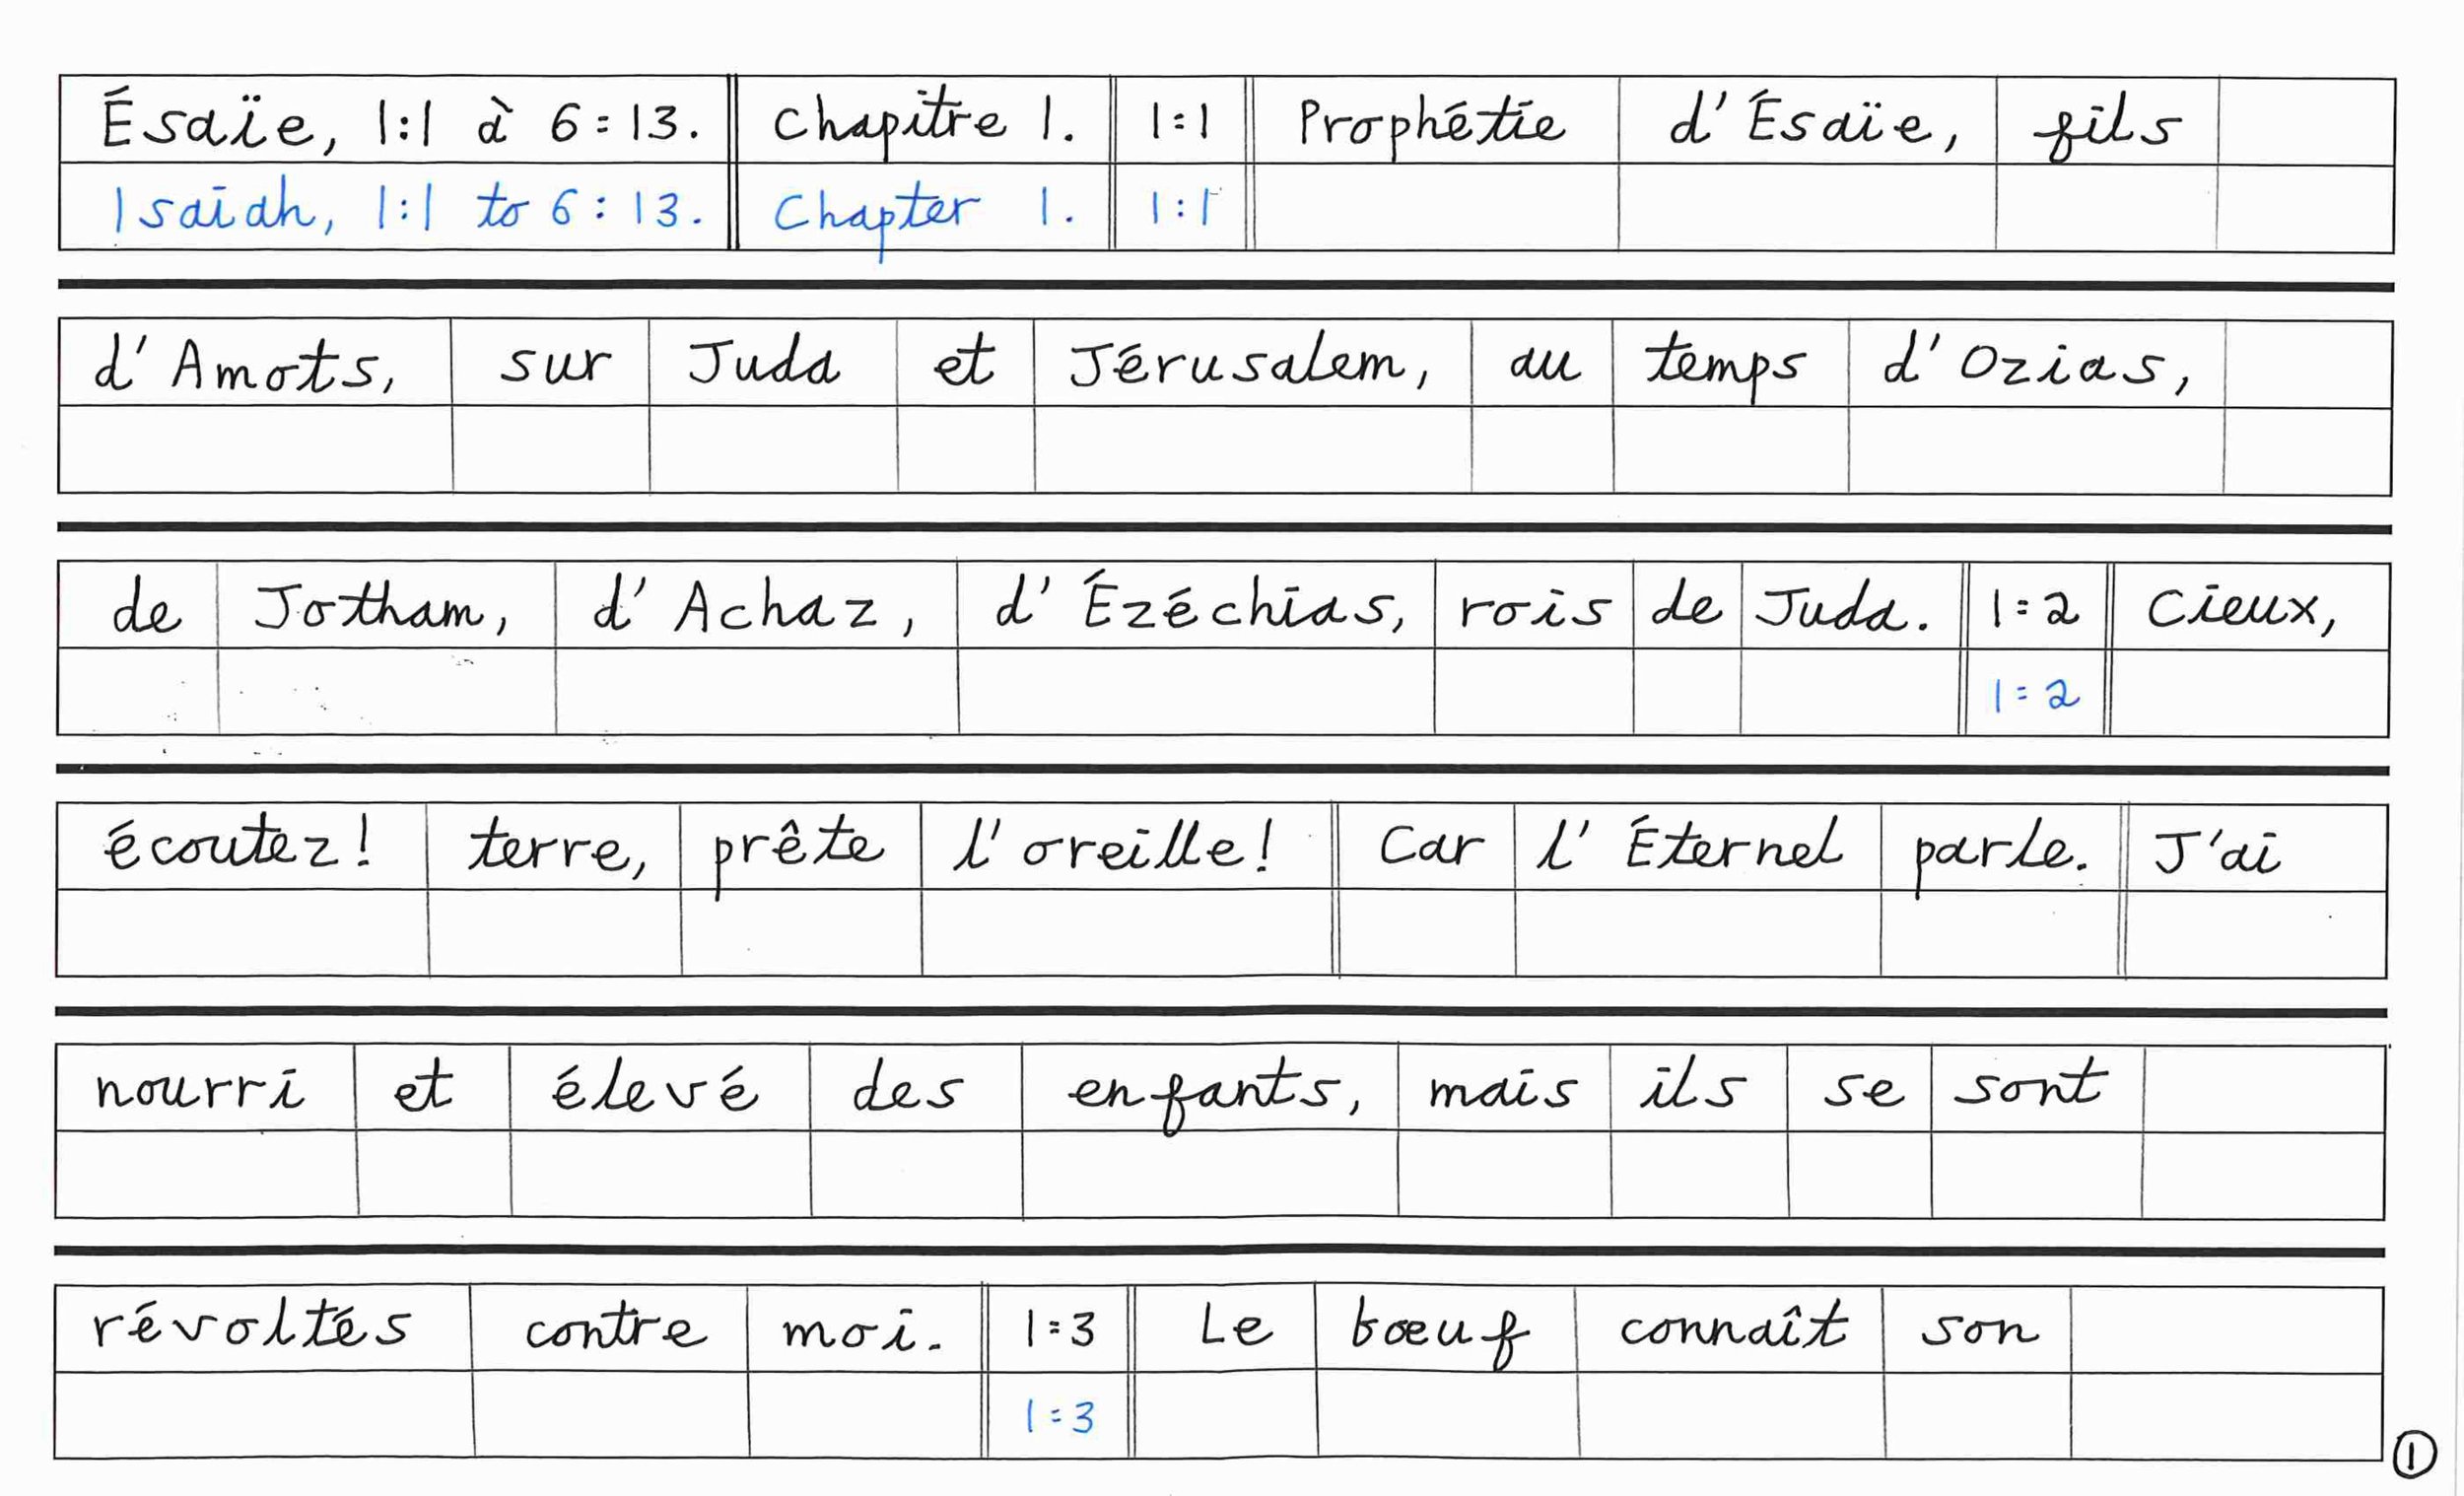 Ésaïe, 1:1 à 6:13. Chapitre 1. 1:1 Prophétie d'Ésaïe, fils
Isaiah, 1:1 to 6:13. Chapter 1. 1:1
d'Amots, sur Juda et Jérusalem, au temps d'Ozias,
de Jotham, d'Achaz, d'Ézéchias, rois de Juda. 1:2 Cieux,
1:2
écoutez! terre, prête l'oreille! Car l'Éternel parle. J'ai
nourri et élevé des enfants, mais ils se sont
révoltés contre moi. 1:3 Le bœuf connaît son
1:3
1